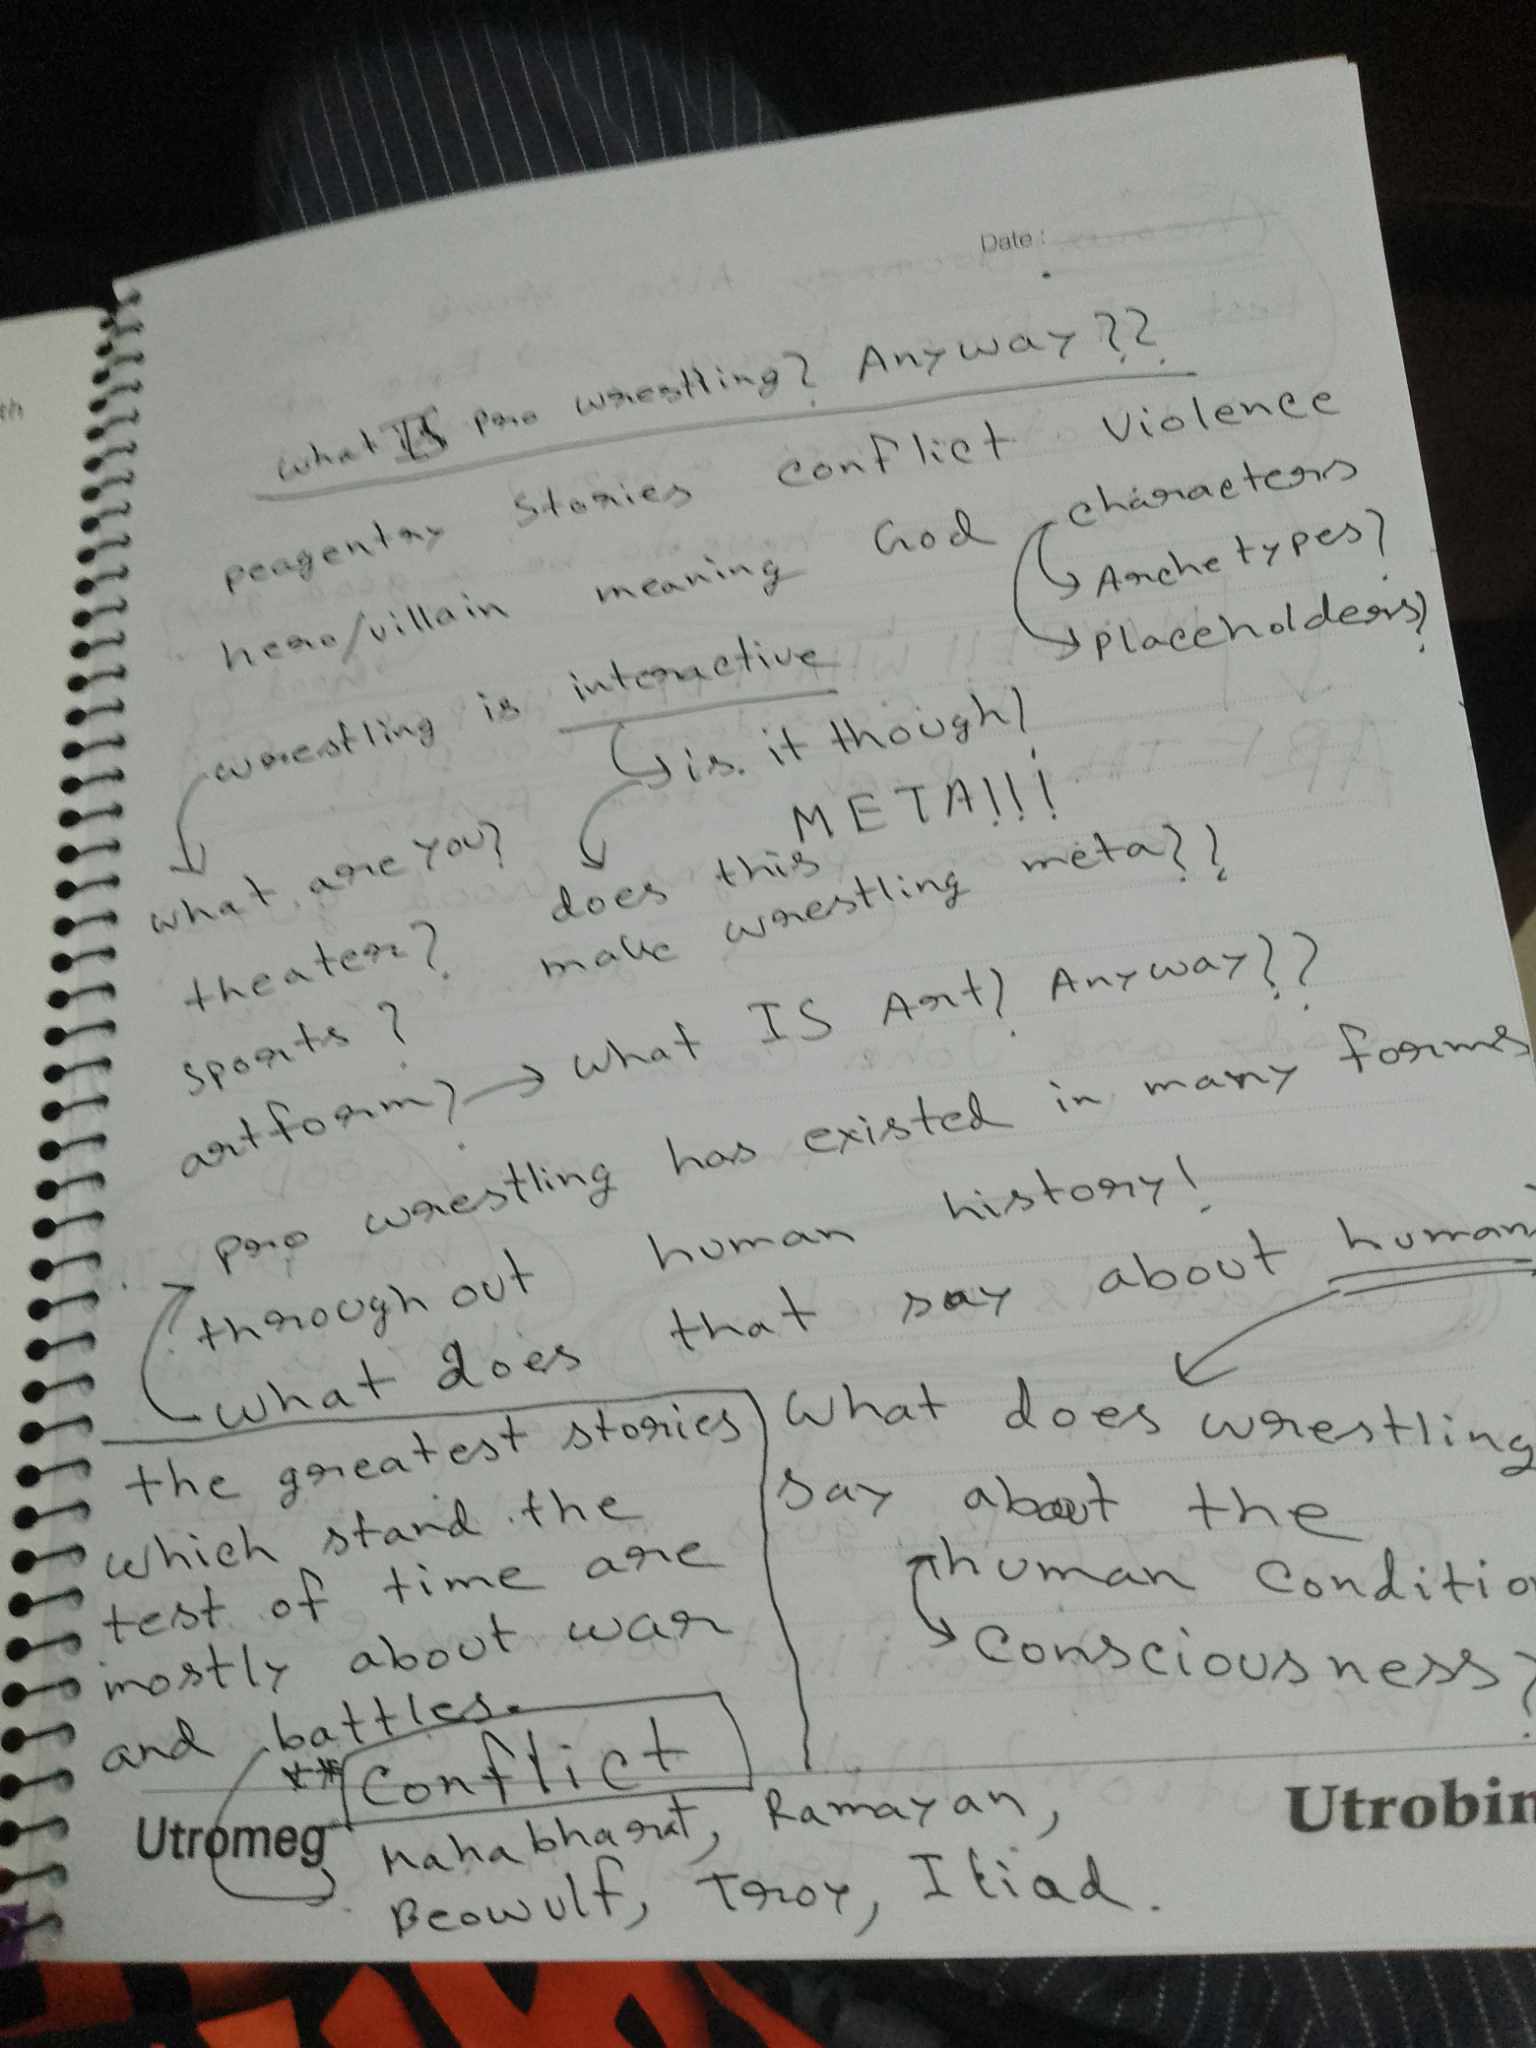 th
Date :
What IS pro wrestling? Anyway??
peagentry stories conflict violence
hero/villain meaning God characters
Archetypes?
placeholders?
wrestling is interactive
is it though?
META!!!
what are you?
does this
make wrestling meta??
theater?
sports?
artform? → what IS Art? Anyway??
pro wrestling has existed in many forms
through out human history!
what does that say about human
the greatest stories
which stand the
test of time are
mostly about war
and battles.
** Conflict
What does wrestling
say about the
human Conditio
Consciousness?
Utromeg
Utrobin
Mahabharat, Ramayan,
Beowulf, Troy, Iliad.